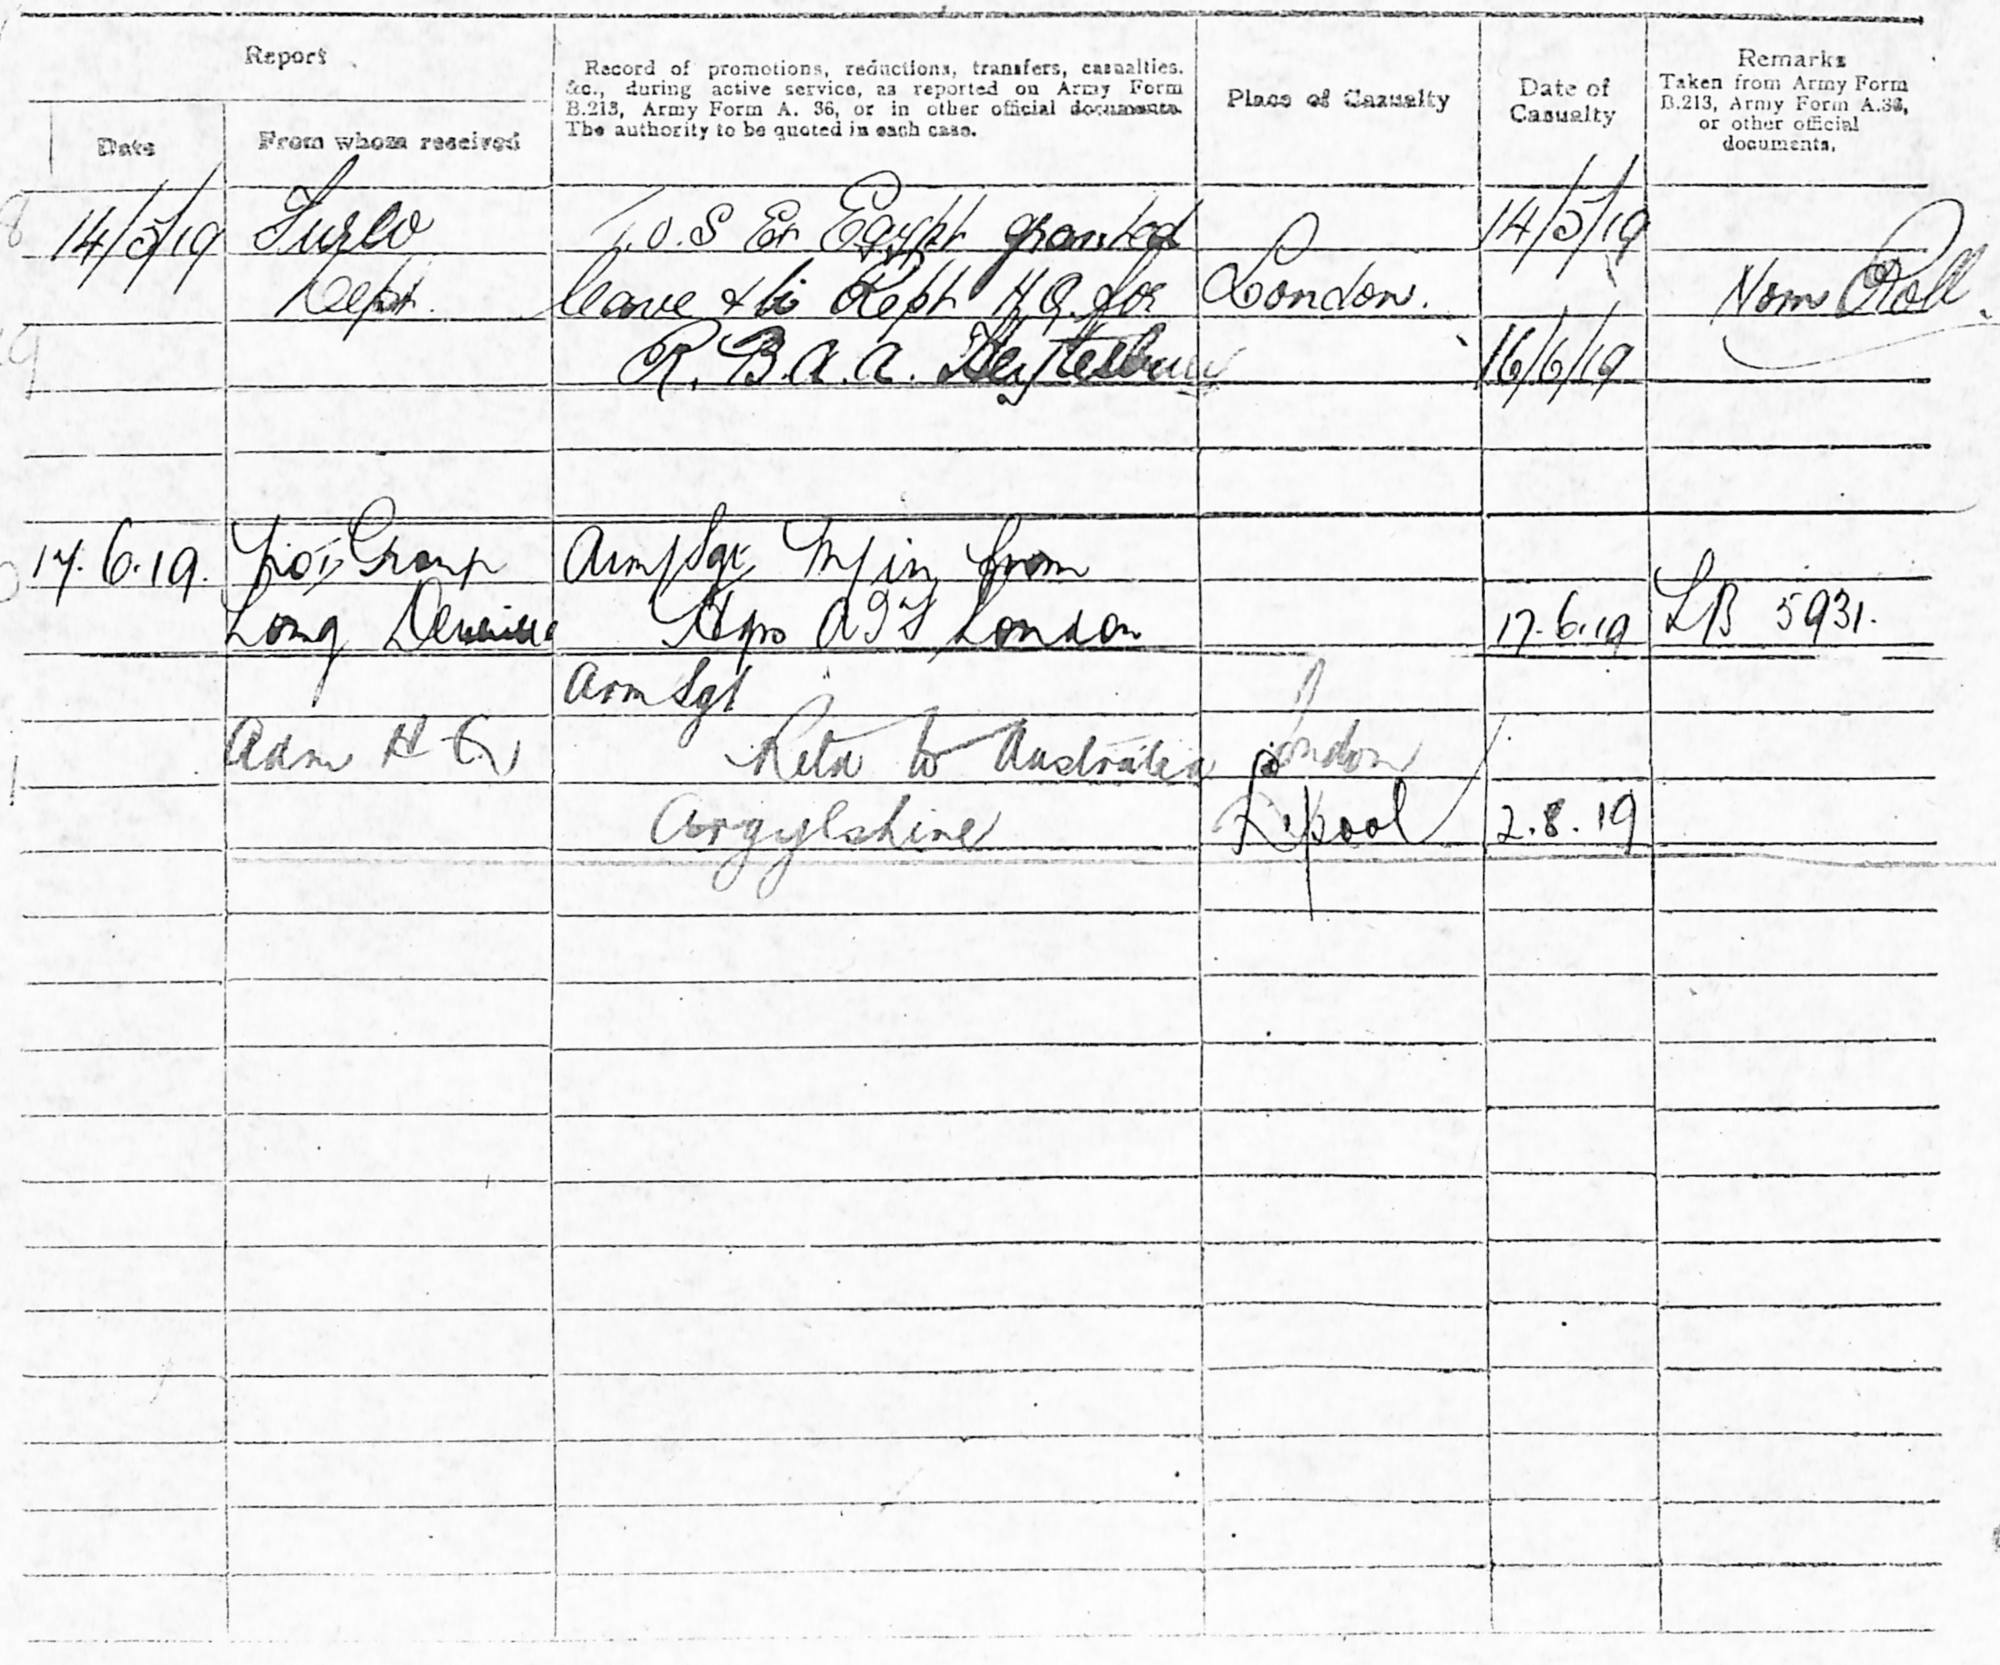 Report
Record of promotions, reductions, transfers, casualties,
&c., during active service, as reported on Army Form
B.213, Army Form A. 36, or in other official documents.
The authority to be quoted in each case.
Place of Casualty
Date of
Casualty
Remarks
Taken from Army Form
B.213, Army Form A.36,
or other official
documents.
Date
From whom received
14/5/19 Furlo T.O.S Ex Egypt granted 14/5/19
Dept. leave & to Rept H.Q. for London. Nom Roll.
R. B. A. A. Heytesbury 16/6/19
17.6.19. Group Arm/Sgt M/in from
Long Hqrs A I F London 17.6.19 LB 5931.
Arm Sgt
Adm H Q Retn to Australia London
Argylshire L'pool 2.8.19